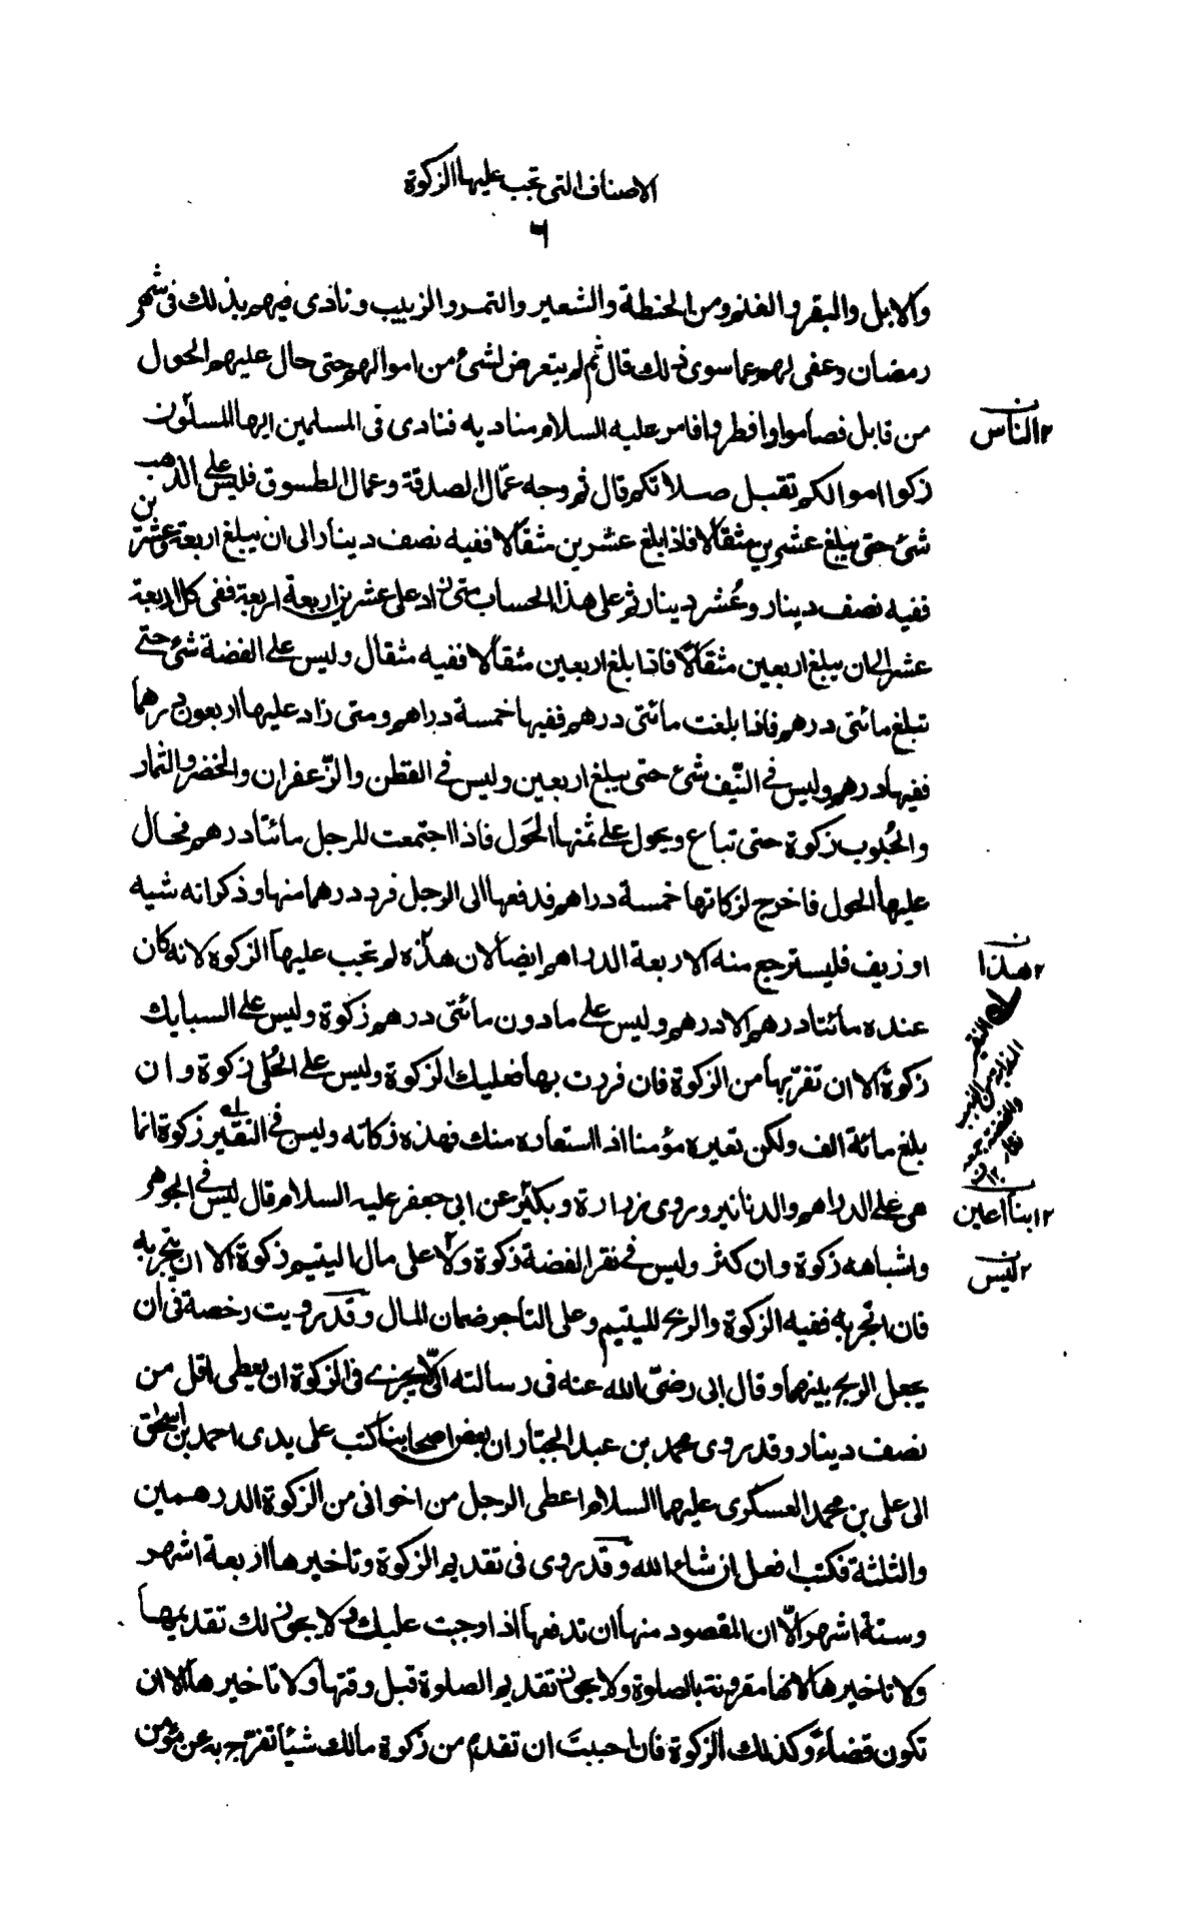 الاصناف التى تجب عليها الزكوة
٦
والابل والبقر والغنم ومن الحنطة والشعير والتمر والزبيب ونادى فيهم بذلك فى شهر
رمضان وعفى لهم عما سوى ذلك قال ثم لم يتعرض لشئ من اموالهم حتى حال عليهم الحول
من قابل فصاموا وافطروا فامر عليه السلام مناديه فنادى فى المسلمين ايها المسلمون
زكوا اموالكم تقبل صلاتكم قال ثم وجه عمال الصدقة وعمال الطسوق فليس على الذهب
شئ حتى يبلغ عشرين مثقالا فاذا بلغ عشرين مثقالا ففيه نصف دينار الى ان يبلغ اربعة وعشرين
ففيه نصف دينار وعُشر دينار ثم على هذا الحساب متى زاد على عشرين اربعة اربعة ففى كل اربعة
عشر الى ان يبلغ اربعين مثقالا فاذا بلغ اربعين مثقالا ففيه مثقال وليس على الفضة شئ حتى
تبلغ مائتى درهم فاذا بلغت مائتى درهم ففيها خمسة دراهم ومتى زاد عليها اربعون درهما
ففيها درهم وليس فى النيّف شئ حتى يبلغ اربعين وليس فى القطن والزّعفران والخضر والثمار
والحُبوب زكوة حتى تباع ويحول على ثمنها الحَول فاذا اجتمعت للرجل مائتا درهم فحال
عليها الحول فاخرج لزكاتها خمسة دراهم فدفعها الى الرجل فرد درهما منها وذكر انه شبه
او زيف فليسترجع منه الاربعة الدراهم ايضا لان هذه لم تجب عليها الزكوة لانه كان
عنده مائتا درهم الا درهم وليس على مادون مائتى درهم زكوة وليس على السبايك
زكوة الا ان تفر بها من الزكوة فان فررت بها فعليك الزكوة وليس على الحُلى زكوة وان
بلغ مائة الف ولكن تعيره مؤمنا اذا استعاره منك فهذه زكاته وليس فى النقير زكوة انما
هى على الدراهم والدنانير وروى زرارة وبكير عن ابى جعفر عليه السلام قال ليس فى الجوهر
واشباهه زكوة وان كثر وليس فى نقر الفضة زكوة ولا على مال اليتيم زكوة الا ان يتجر به
فان اتجر به ففيه الزكوة والربح لليتيم وعلى التاجر ضمان المال وقد رويت رخصة فى ان
يجعل الربح بينهما وقال ابى رضى الله عنه فى رسالته الىّ لا يجزى فى الزكوة ان يعطى اقل من
نصف دينار وقد روى محمد بن عبد الجبّار ان بعض اصحابنا كتب على يدى احمد بن اسحٰق
الى على بن محمد العسكرى عليهما السلام اعطى الرجل من اخوانى من الزكوة الدرهمين
والثلثة فكتب افعل ان شاء الله وقد روى فى تقديم الزكوة وتاخيرها اربعة اشهر
وستة اشهر الّا ان المقصود منها ان تدفعها اذا وجبت عليك ولا يجوز لك تقديمها
ولا تاخيرها لانها مقرونة بالصلوة ولا يجوز تقديم الصلوة قبل وقتها ولا تاخيرها الا ان
تكون قضاءً وكذلك الزكوة فان احببتَ ان تقدم من زكوة مالك شيئا تفرّج به عن مؤمن
٢ الناس
٢ هذا
٢ ابنا اعين
٢ ليس